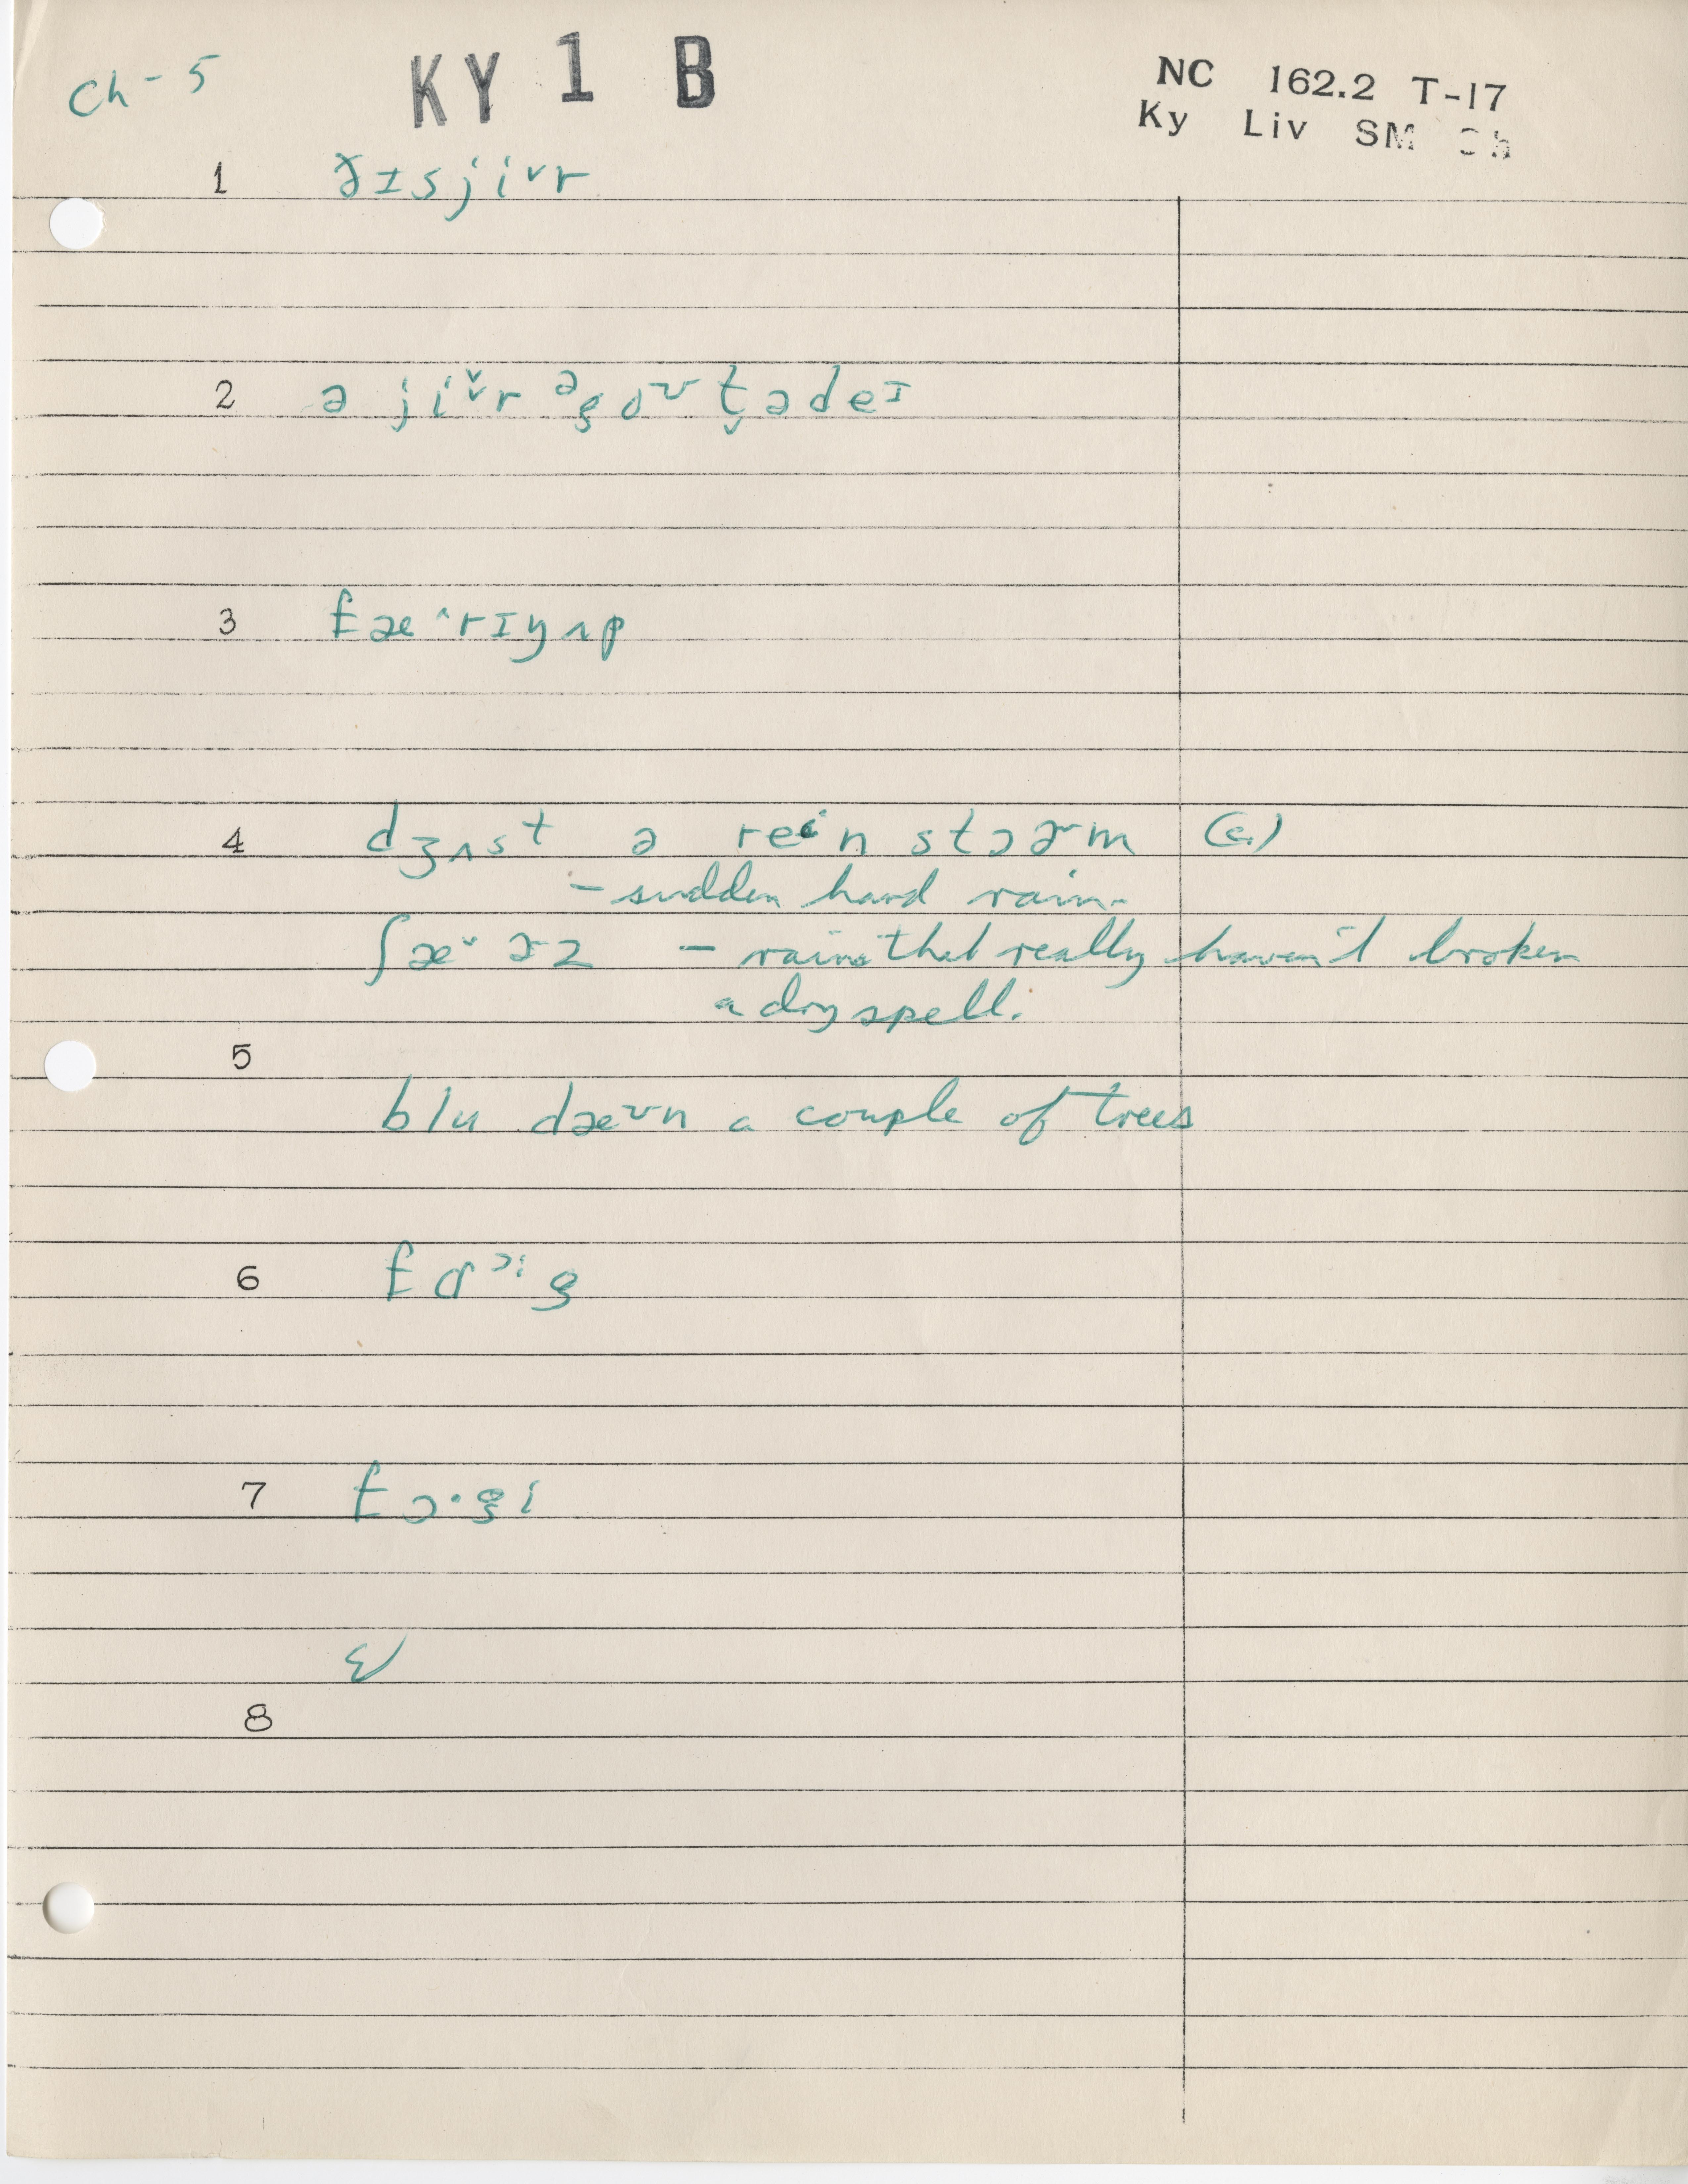 Ch - 5
KY 1 B
NC 162.2 T-17
Ky Liv SM Ch
1 ðɪsjiᵛr
2 ə jiˇr əgoᶷ t̬ədeᴵ
3 fæ^rɪŋʌp
4 dʒʌst ə rein stɔɚm (c.)
- sudden hard rain.
ʃæˇɚz - rains that really haven't broken
a dry spell.
5
blu dæᶷn a couple of trees
6 fɑᵓⁱg
7 fɔ·gi
8